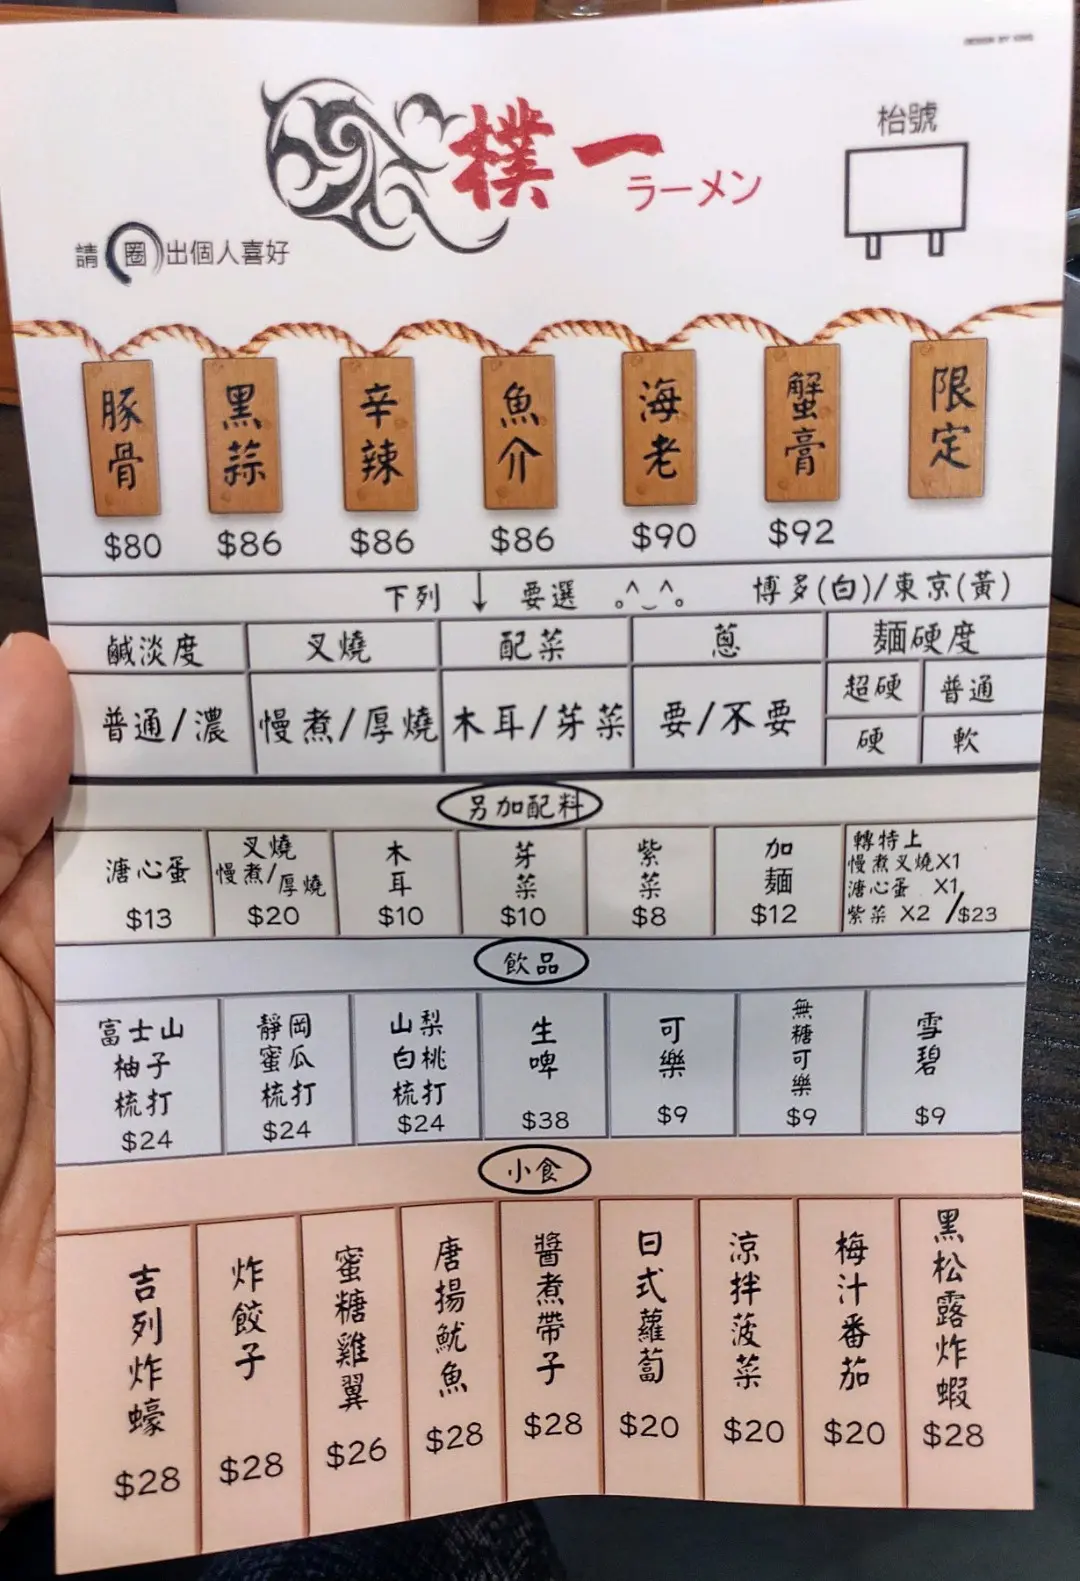 DESIGN BY KING
樸一
ラーメン
枱號
請圈出個人喜好
豚骨 $80
黑蒜 $86
辛辣 $86
魚介 $86
海老 $90
蟹膏 $92
限定
下列↓要選 。^‿^。 博多(白)/東京(黃)
鹹淡度 叉燒 配菜 蔥 麵硬度
普通/濃 慢煮/厚燒 木耳/芽菜 要/不要
超硬 普通
硬 軟
另加配料
溏心蛋 $13
叉燒
慢煮/厚燒
$20
木耳 $10
芽菜 $10
紫菜 $8
加麵 $12
轉特上
慢煮叉燒X1
溏心蛋 X1
紫菜 X2 /$23
飲品
富士山
柚子
梳打
$24
靜岡
蜜瓜
梳打
$24
山梨
白桃
梳打
$24
生啤 $38
可樂 $9
無糖可樂 $9
雪碧 $9
小食
吉列炸蠔 $28
炸餃子 $28
蜜糖雞翼 $26
唐揚魷魚 $28
醬煮帶子 $28
日式蘿蔔 $20
涼拌菠菜 $20
梅汁番茄 $20
黑松露炸蝦 $28